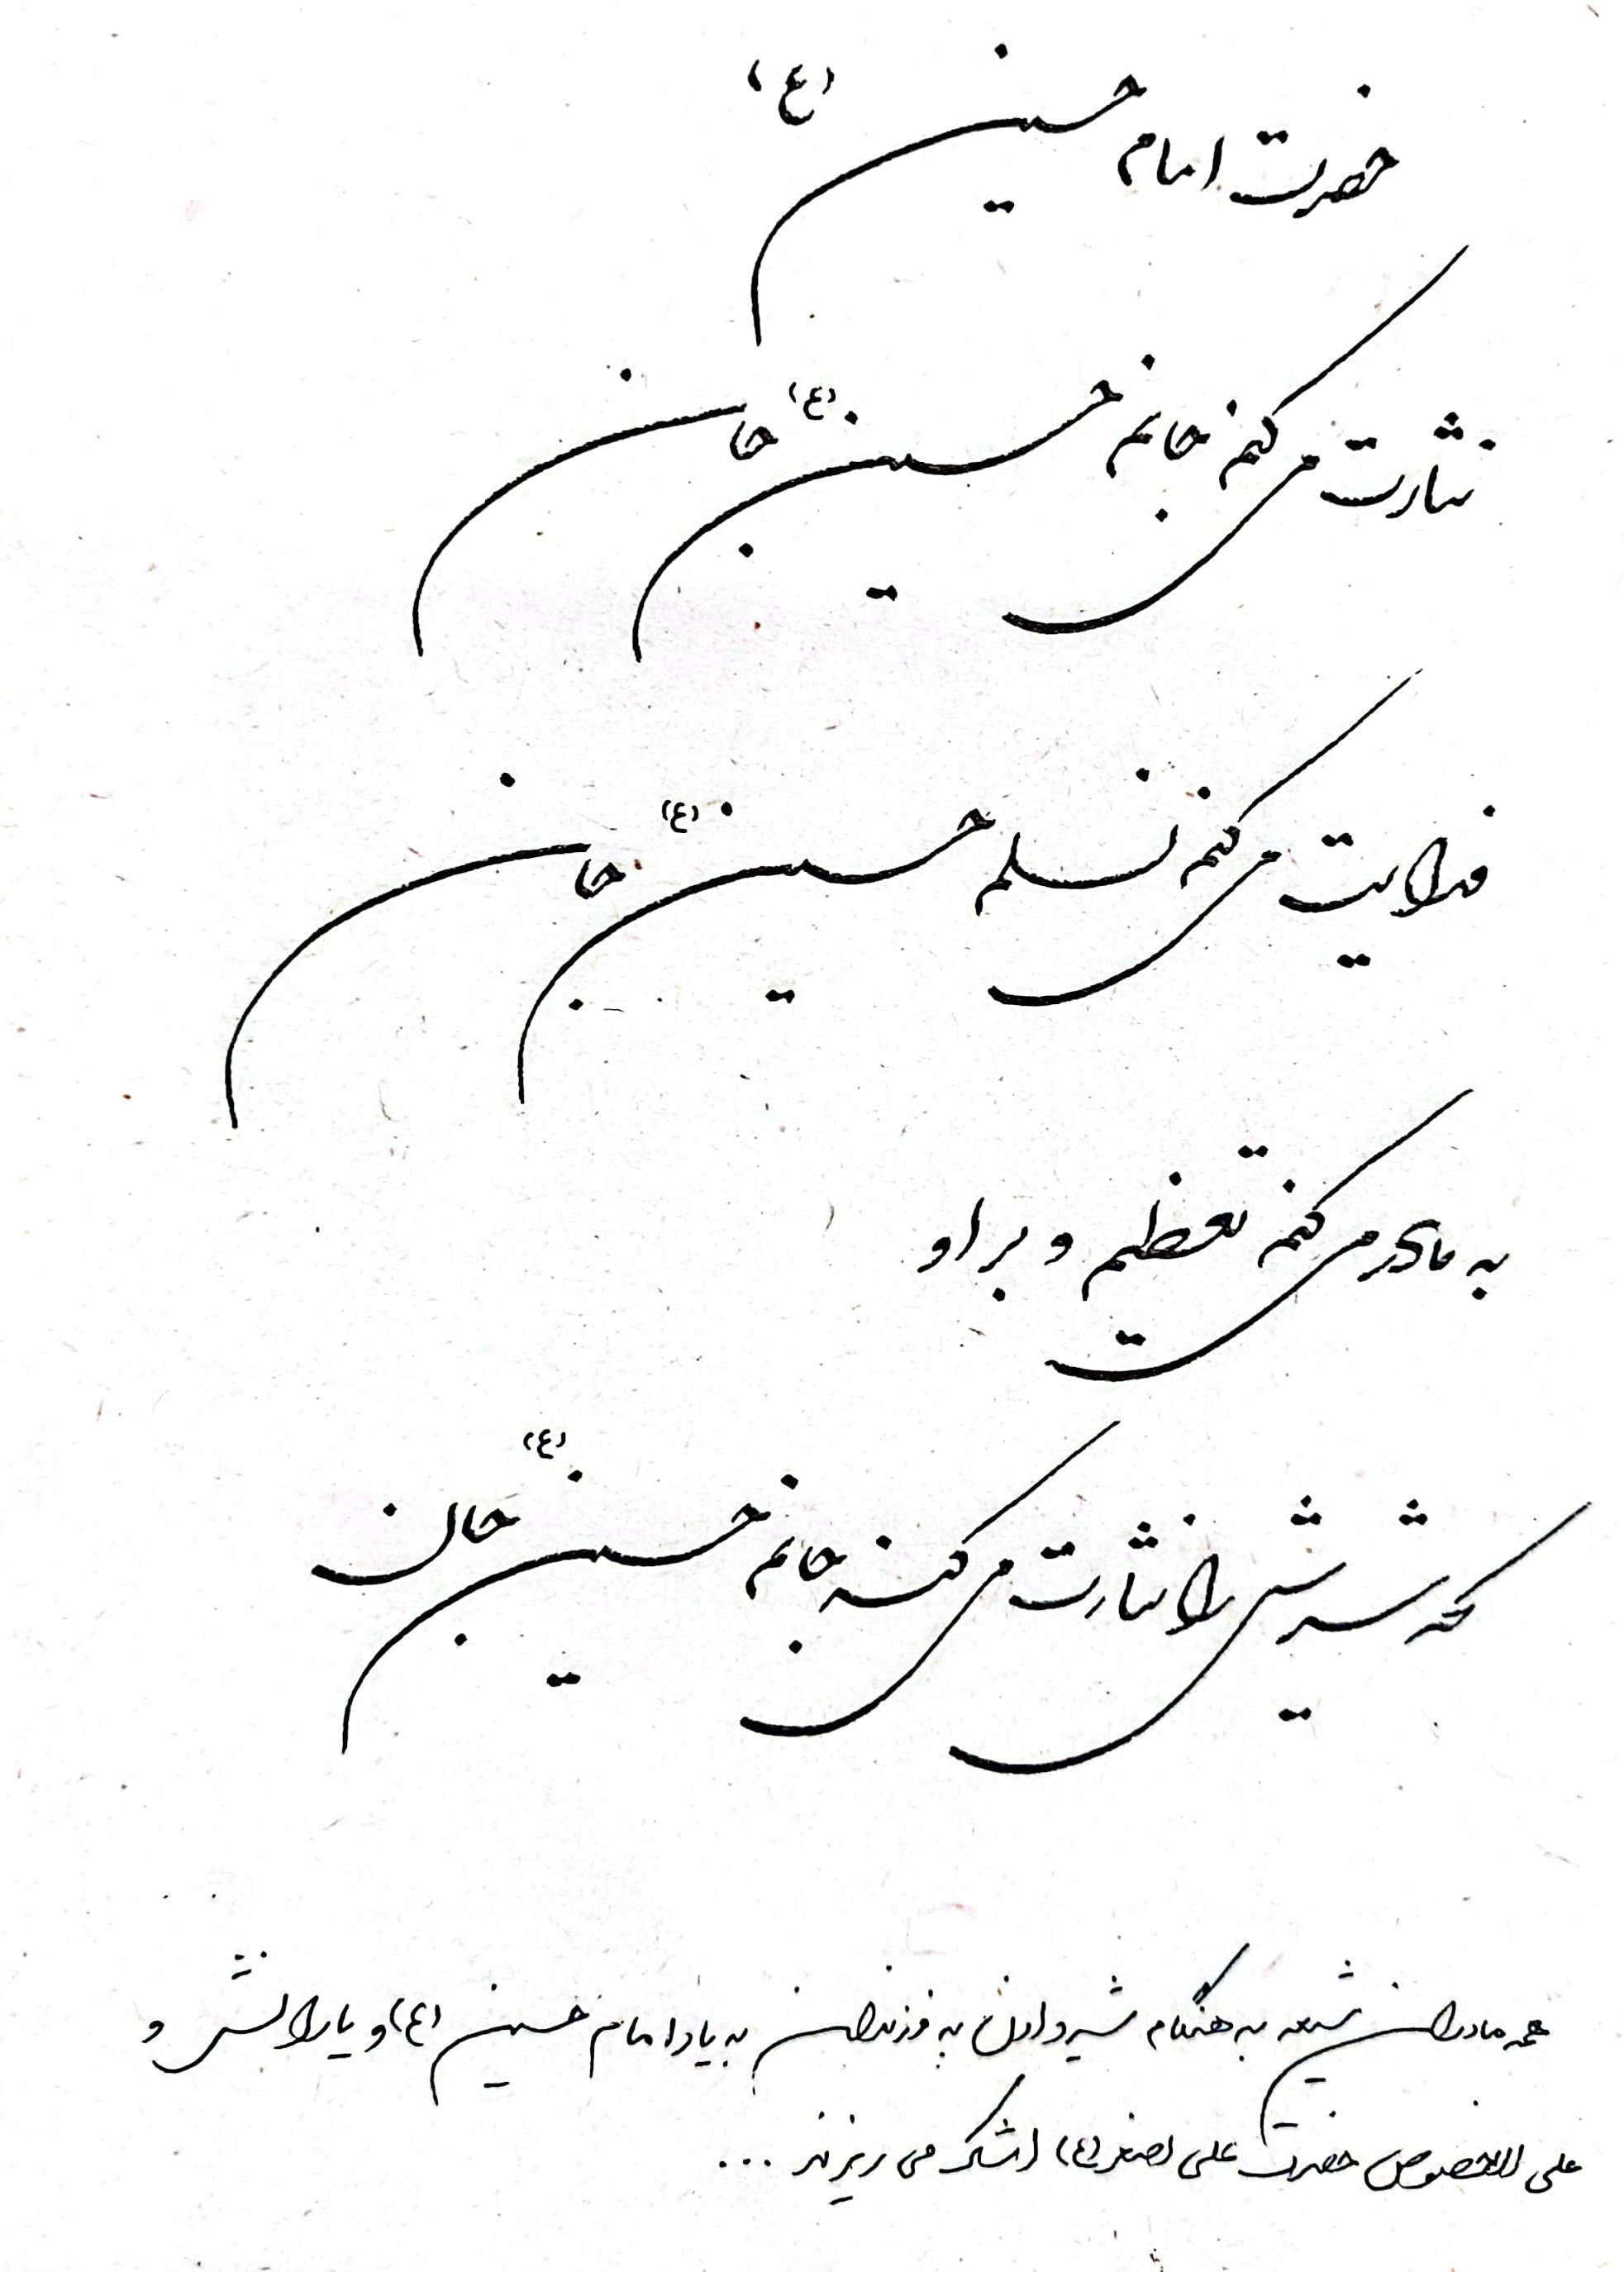 حضرت امام حسین (ع)
نثارت می کنم جانم حسین (ع) جان
فدایت می کنم نسلم حسین (ع) جان
به مادر می کنم تعظیم و بر او
که شیرش را نثارت می کند جانم حسین (ع) جان
همه مادران شیعه به هنگام شیر دادن به فرزندان به یاد امام حسین (ع) و یارانش و
علی الخصوص حضرت علی اصغر (ع) اشک می ریزند ...